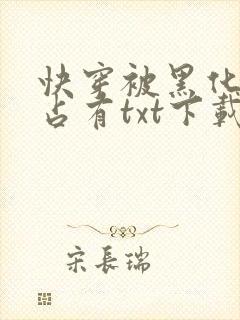 快穿被黑化
占有txt下载
宋長瑞